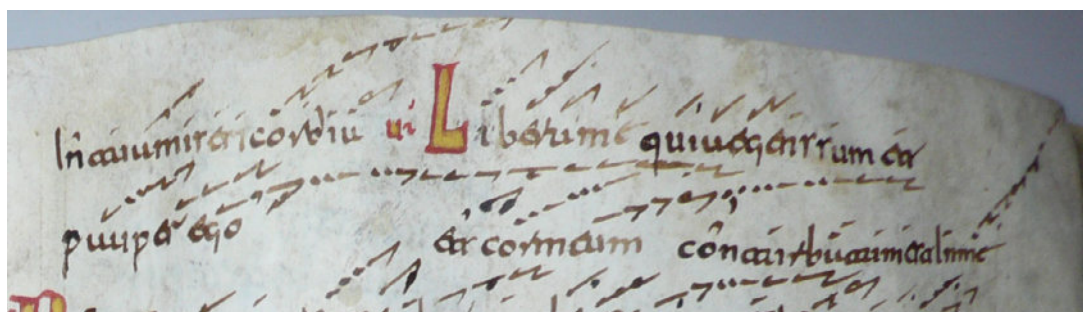 In tua misericordia Libera me quia egens sum et
pauper ego et cor meum conturbatum est in me